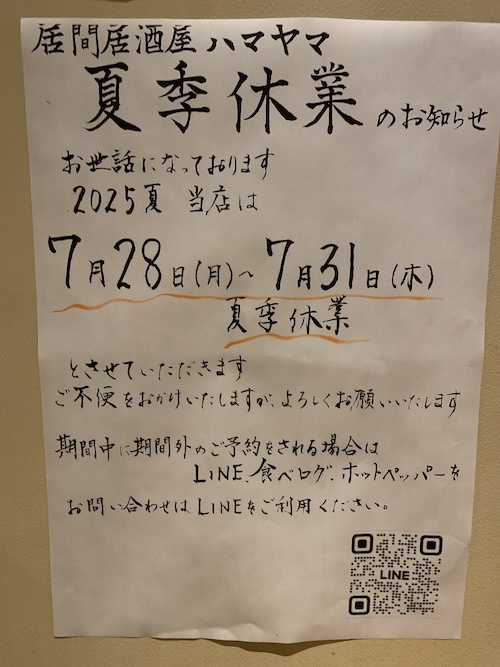 居間居酒屋 ハマヤマ
夏季休業のお知らせ
お世話になっております
2025夏 当店は
7月28日(月)~7月31日(木)
夏季休業
とさせていただきます
ご不便をおかけいたしますが、よろしくお願いいたします
期間中に期間外のご予約をされる場合は
LINE、食べログ、ホットペッパーを
お問い合わせはLINEをご利用ください。
LINE